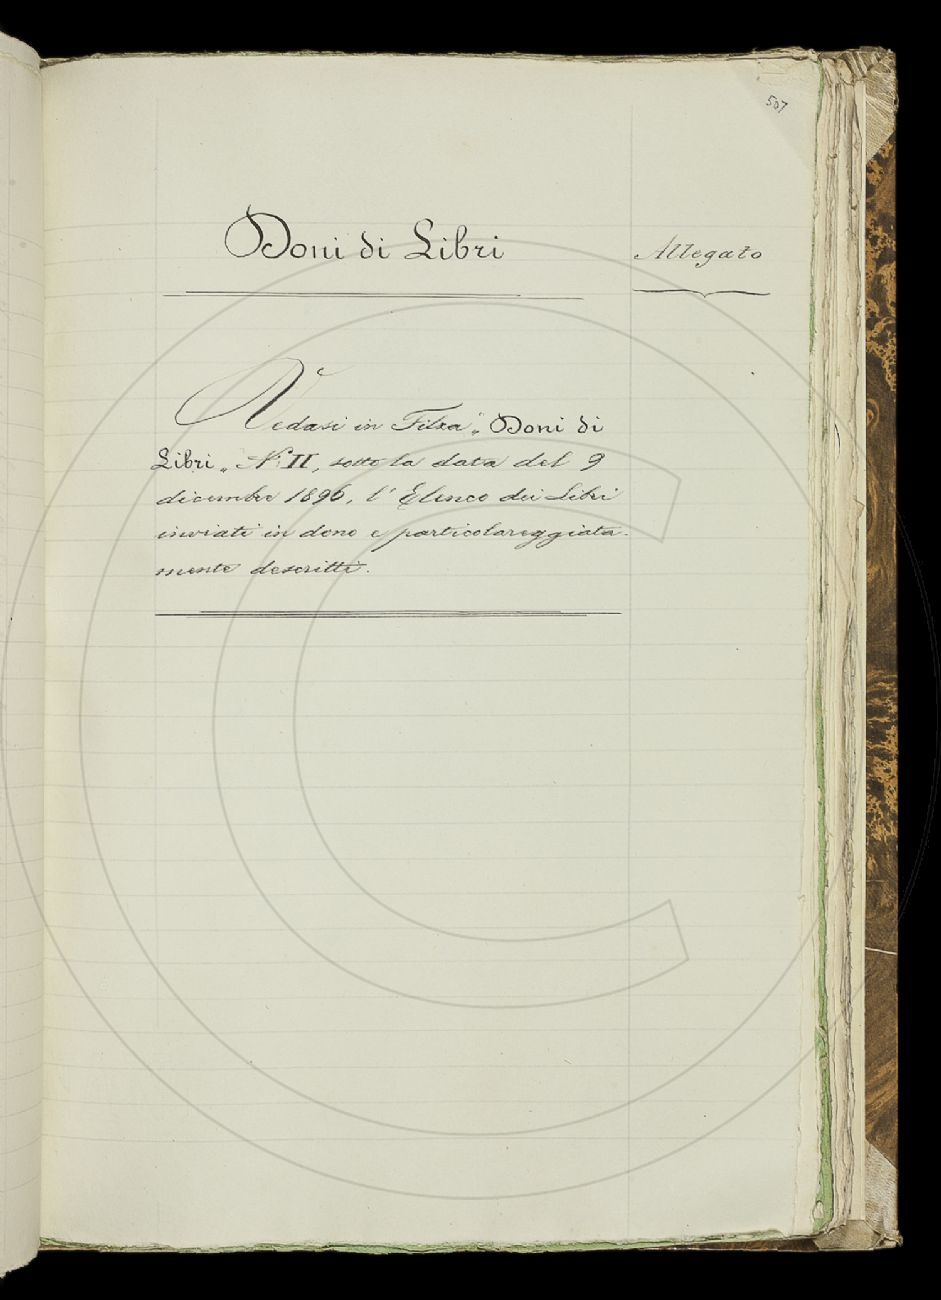 507
Doni di Libri
Allegato
Vedasi in Filza „ Doni di
Libri „ N. II, sotto la data del 9
dicembre 1896, l' Elenco dei Libri
inviati in dono e particolareggiata-
mente descritti.